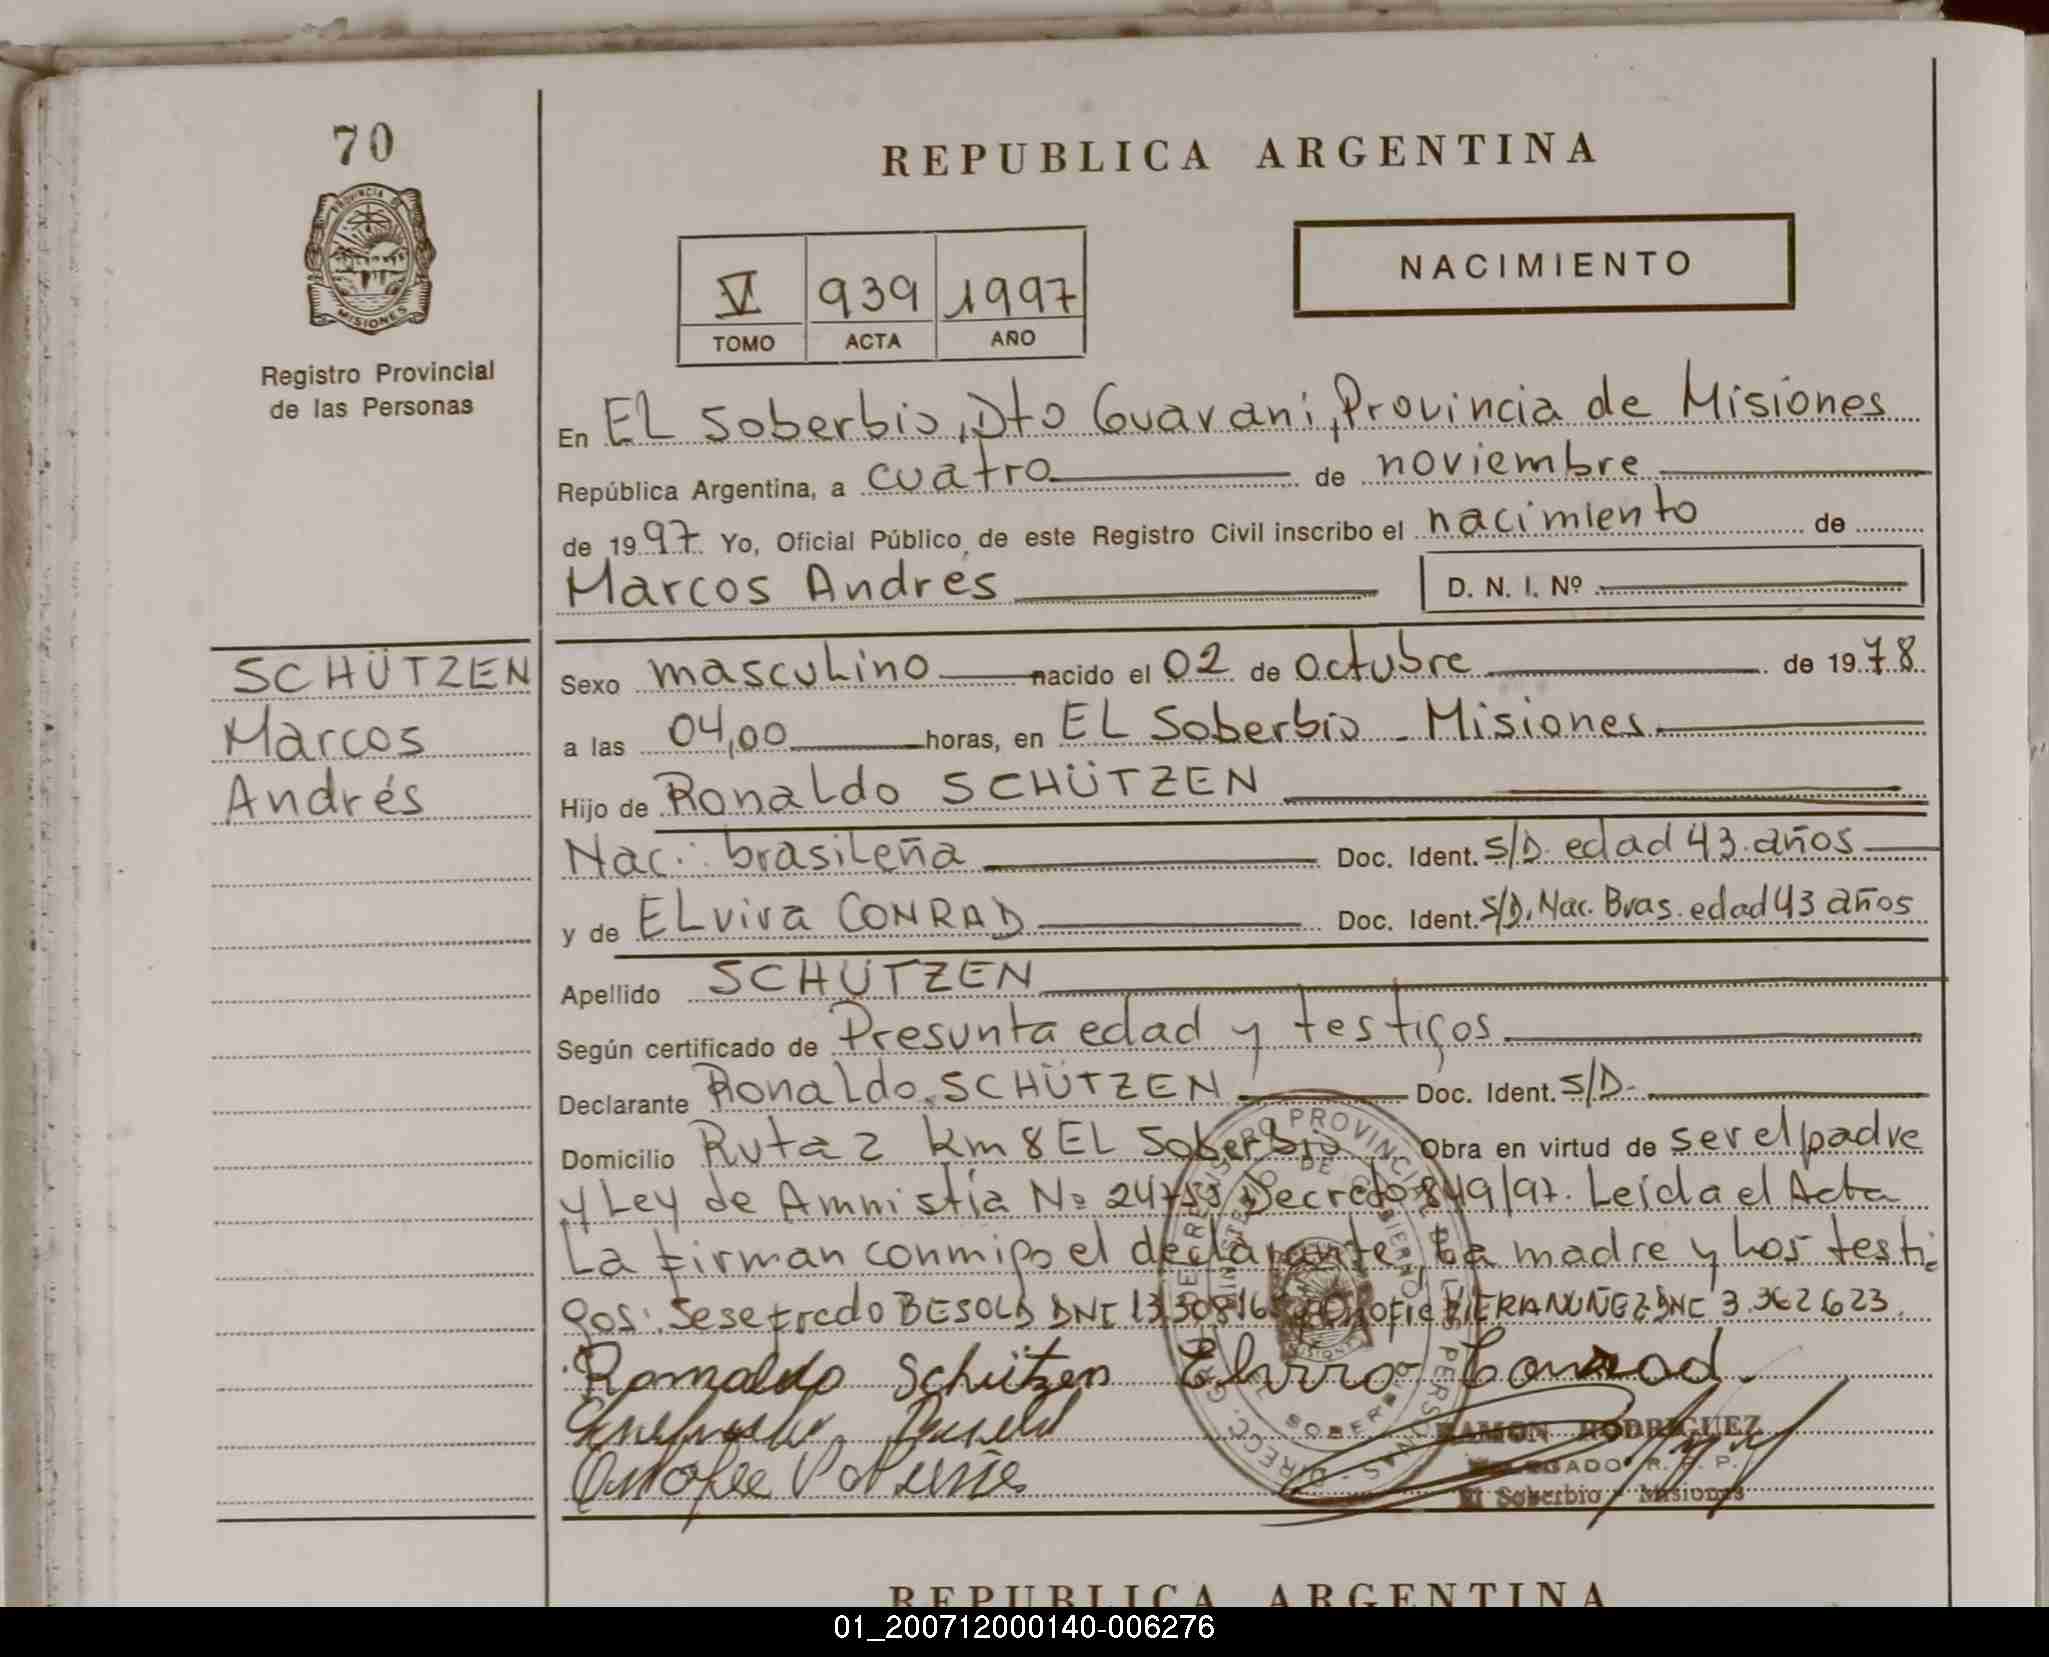 70
PROVINCIA DE
MISIONES
Registro Provincial
de las Personas
REPUBLICA ARGENTINA
V 939 1997
TOMO ACTA AÑO
NACIMIENTO
En EL Soberbio, Dto Guaraní, Provincia de Misiones
República Argentina, a cuatro de noviembre
de 1997 Yo, Oficial Público de este Registro Civil inscribo el nacimiento de
Marcos Andrés D. N. I. Nº
SCHÜTZEN
Marcos
Andrés
Sexo mascuLino nacido el 02 de octubre de 1978
a las 04,00 horas, en EL Soberbio - Misiones
Hijo de RonaLdo SCHÜTZEN
Nac.: brasiLeña Doc. Ident. S/D. edad 43 años
y de ELvira CONRAD Doc. Ident. S/D. Nac. Bras. edad 43 años
Apellido SCHÜTZEN
Según certificado de Presunta edad y testigos
Declarante RonaLdo SCHÜTZEN Doc. Ident. S/D.
Domicilio Ruta 2 km 8 EL Soberbio Obra en virtud de ser el padre
y Ley de Amnistía Nº Decreto 849/97. Leída el Acta
La firman conmigo el declarante, La madre y Los testi
gos: Sesefredo BESOLD DNI NUÑEZ DNI 3.362.623.
Romaldo Schützen Elvira Conrad.
RAMON RODRIGUEZ
DELEGADO R. P. P.
El Soberbio - Misiones
REPUBLICA ARGENTINA
01_200712000140-006276